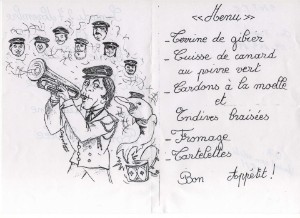 «Menu»
- Terrine de gibier
- Cuisse de canard
au poivre vert
- Cardons à la moelle
et
Endives braisées
- Fromage
- Tartelettes
Bon Appétit !